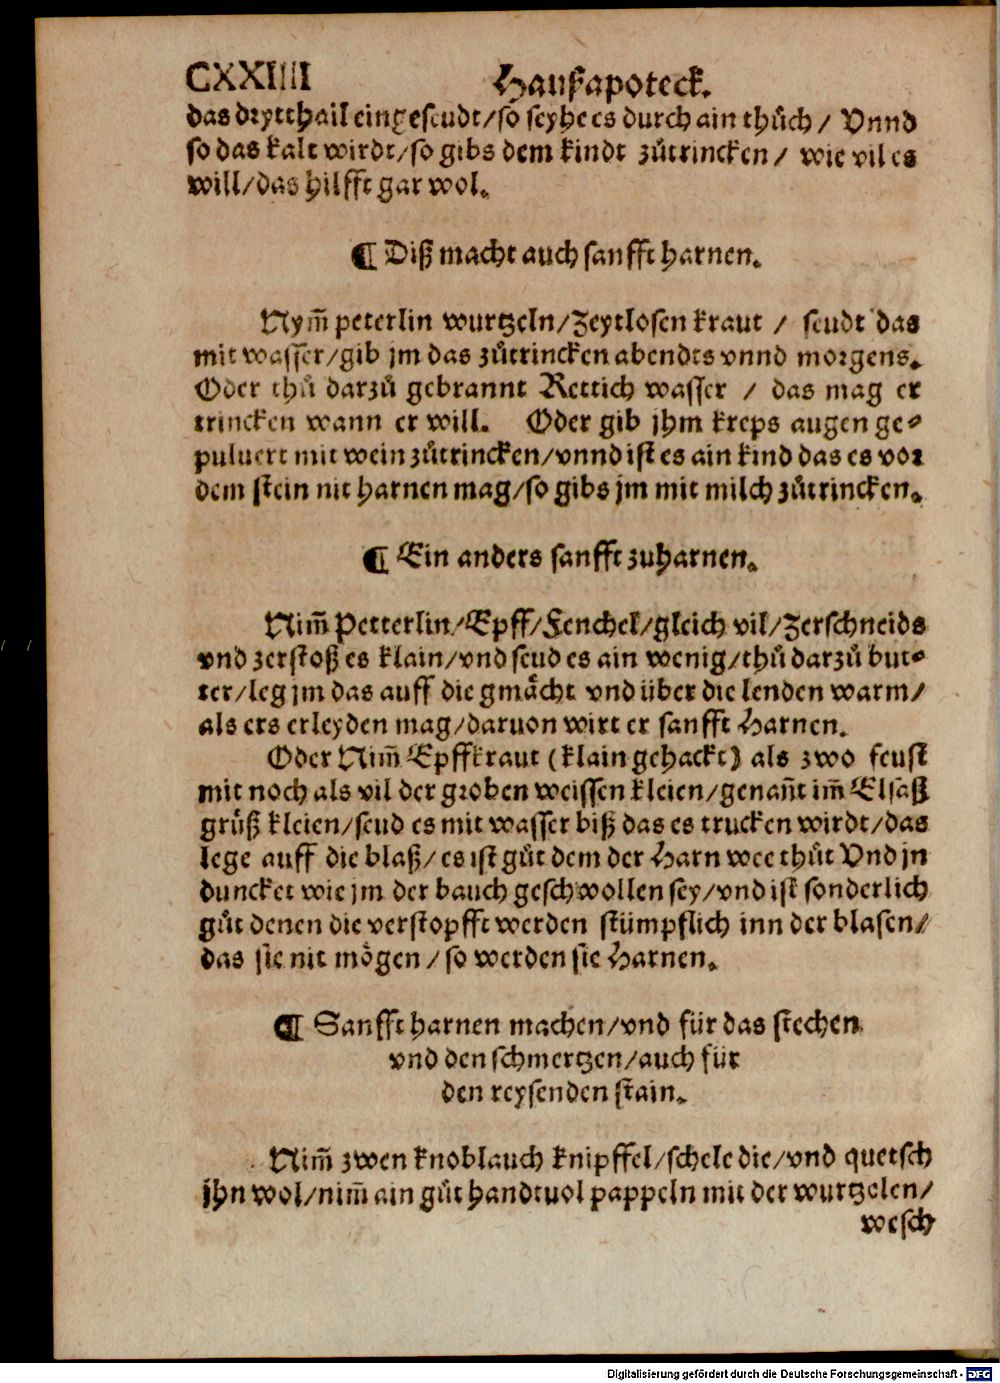 CXXIIII Haußapoteck.
das dryttheil eingeseudt/so seyhe es durch ain thůch/ Vnnd
so das kalt wirdt/so gibs dem kindt zůtrincken/ wie vil es
will/das hilfft gar wol.
¶ Diß macht auch sanfft harnen.
Nym̃ peterlin wurtzeln/Zeytlosen kraut / seudt das
mit wasser/gib jm das zůtrincken abendts vnnd morgens.
Oder thů darzů gebrannt Rettich wasser / das mag er
trincken wann er will. Oder gib jhm kreps augen ge⸗
puluert mit wein zůtrincken/vnnd ist es ain kind das es vor
dem stein nit harnen mag/so gibs jm mit milch zůtrincken.
¶ Ein anders sanfft zuharnen.
Nim̃ Petterlin/Epff/Fenchel/gleich vil/Zerschneids
vnd zerstoß es klain/vnd seud es ain wenig/thů darzů but⸗
ter/leg jm das auff die gmächt vnd über die lenden warm/
als ers erleyden mag/daruon wirt er sanfft Harnen.
Oder Nim̃ Epffkraut (klain gehackt) als zwo feust
mit noch als vil der groben weissen kleien/genañt im̃ Elsaß
grüß kleien/seud es mit wasser biß das es trucken wirdt/das
lege auff die blaß/es ist gůt dem der Harn wee thůt Vnd jn
duncket wie jm der bauch geschwollen sey/vnd ist sonderlich
gůt denen die verstopfft werden stümpflich inn der blasen/
das sie nit mögen/so werden sie Harnen.
¶ Sanfft harnen machen/vnd für das stechen
vnd den schmertzen/auch für
den reysenden stain.
Nim̃ zwen knoblauch knipffel/schele die/vnd quetsch
jhn wol/nim̃ ain gůt handtuol pappeln mit der wurtzelen/
wesch
Digitalisierung gefördert durch die Deutsche Forschungsgemeinschaft - DFG